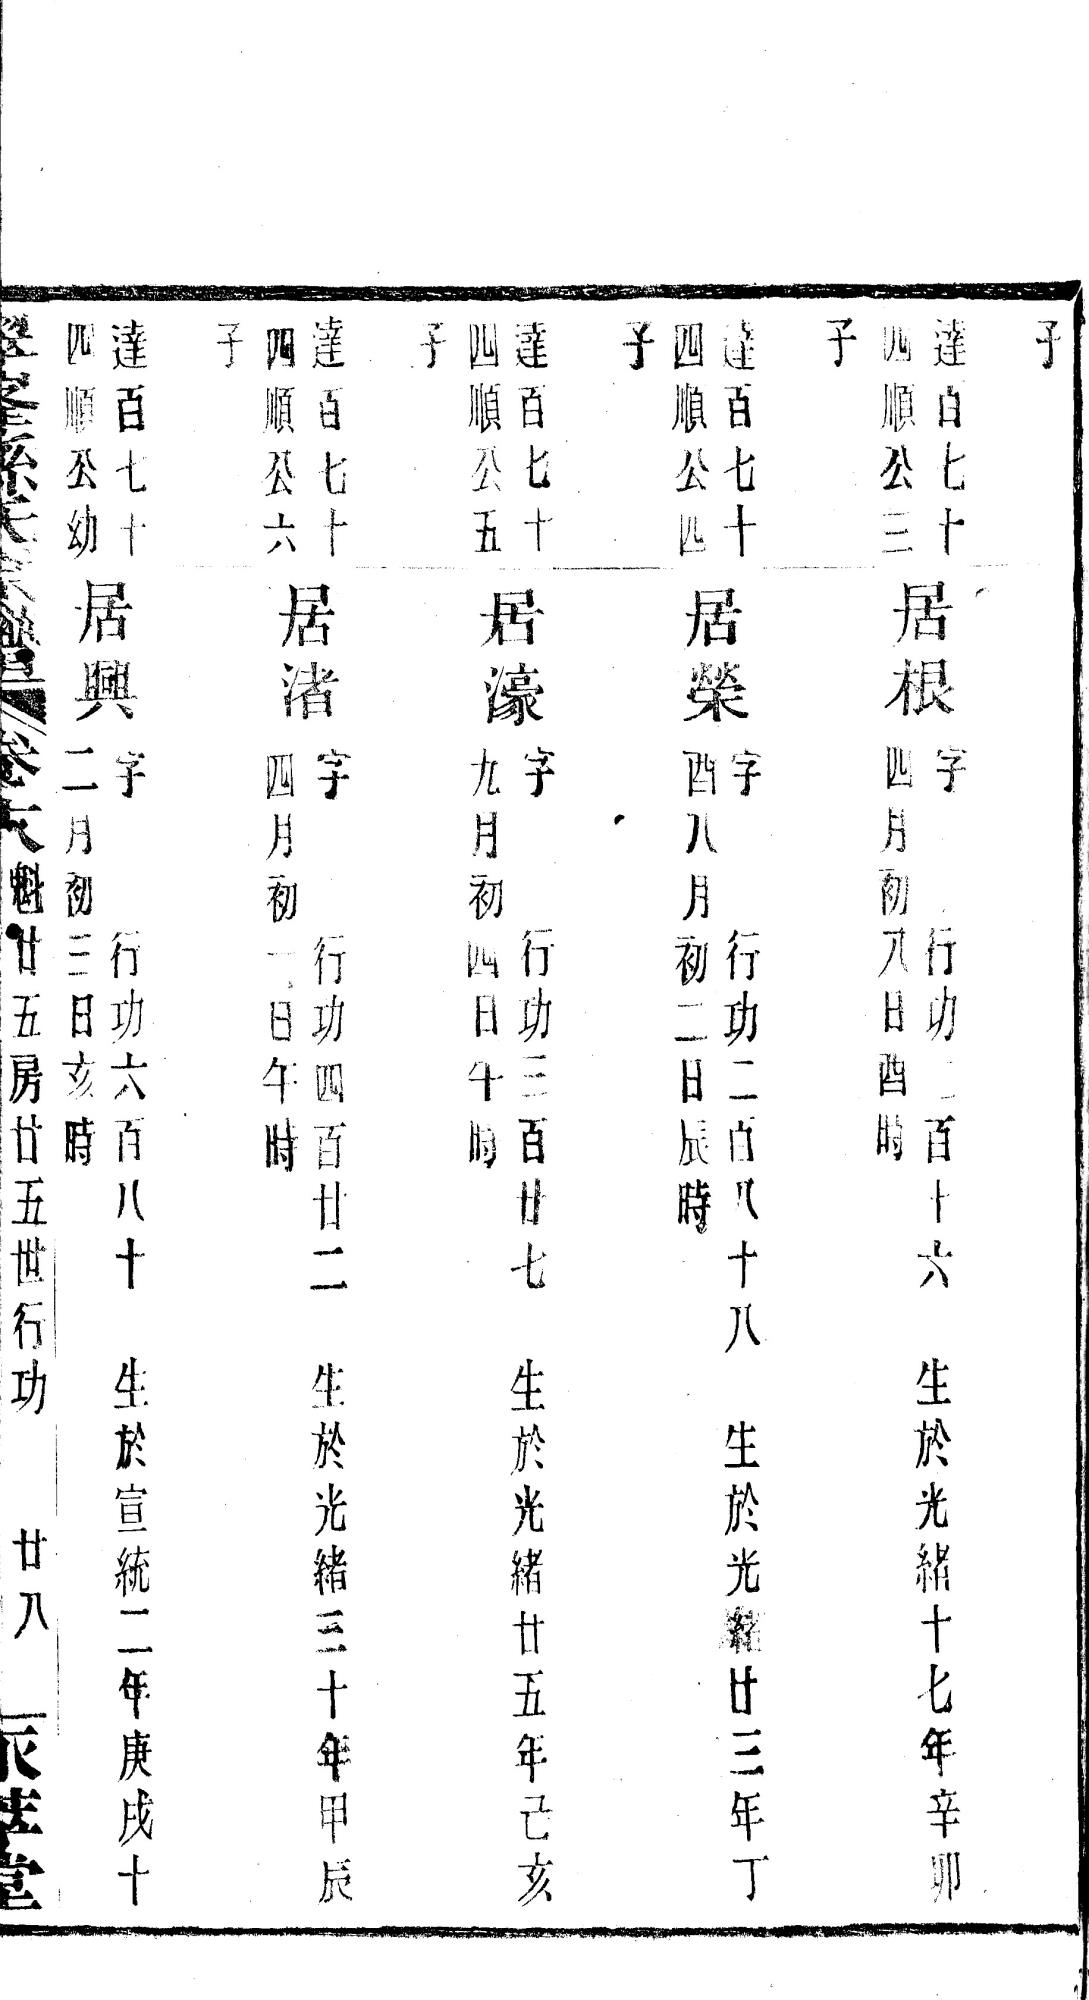 子
達百七十 居根 字 行功二百十六 生於光緒十七年辛卯
四順公三 四月初八日酉時
子
達百七十 居榮 字 行功二百八十八 生於光緒廿三年丁
四順公四 酉八月初二日辰時
子
達百七十 居濠 字 行功三百廿七 生於光緒廿五年己亥
四順公五 九月初四日午時
子
達百七十 居渚 字 行功四百廿二 生於光緒三十年甲辰
四順公六 四月初一日午時
子
達百七十 居興 字 行功六百八十 生於宣統二年庚戌十
四順公幼 二月初三日亥時
孫氏宗譜 卷 魁廿五房廿五世行功 廿八 堂